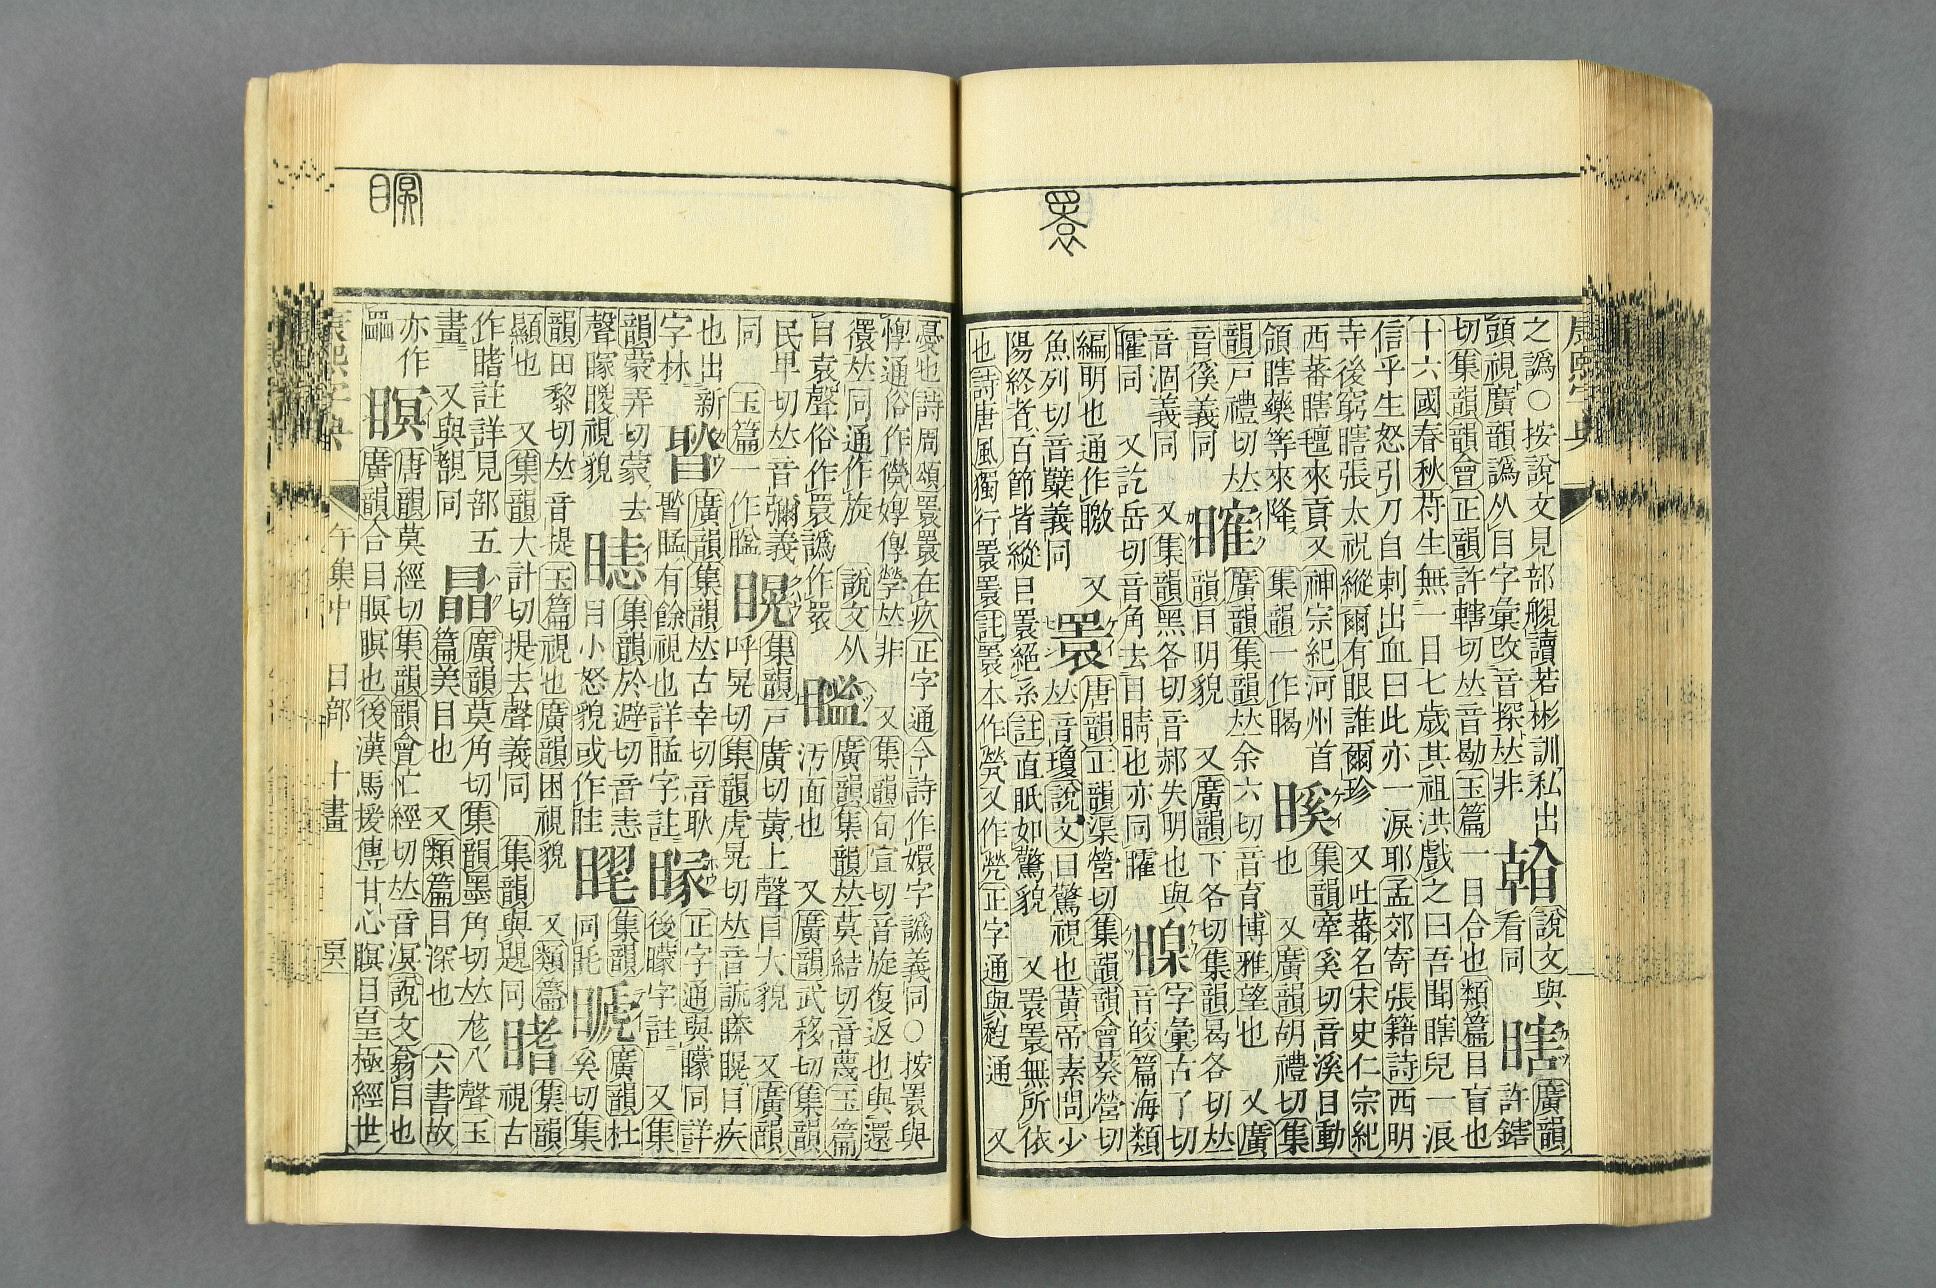 睘
康熙字典
之譌○按說文見部覢讀若彬訓私出 說文與瞎廣韻
頭視廣韻譌从目字彙改音探𠀤非 看同 許鎋
切集韻韻會正韻許轄切𠀤音勘玉篇一目合也類篇目盲也
十六國春秋苻生無一目七歲其祖洪戲之曰吾聞瞎兒一淚
信乎生怒引刀自刺出血曰此亦一淚耶孟郊寄張籍詩西明
寺後窮瞎張太祝縱爾有眼誰爾珍 又吐蕃名宋史仁宗紀
西蕃瞎氊來貢又神宗紀河州首 集韻牽奚切音溪目動
領瞎藥等來降 集韻一作 也 又廣韻胡禮切集
韻戶禮切𠀤 廣韻集韻𠀤余六切音育博雅望也 又廣
音徯義同 韻目明貌 又廣韻下各切集韻曷各切𠀤
音涸義同 又集韻黑各切音郝失明也與 字彙古了切
矐同 又訖岳切音角去目睛也亦同矐 音皎篇海類
編明也通作瞰 又睘唐韻正韻渠營切集韻韻會葵營切
魚列切音糱義同 𠀤音瓊說文目驚視也黃帝素問少
陽終者百節皆縱目睘絕系註直眂如驚貌 又睘睘無所依
也詩唐風獨行睘睘註睘本作煢又作焭正字通與 通 又
憂也詩周頌睘睘在疚正字通今詩作嬛字譌義同○按睘與
惸通俗作 𠀤非 又集韻旬宣切音旋復返也與還
𠀤同通作旋 說文从 廣韻集韻𠀤莫結切音蔑玉篇
目袁聲俗作睘譌作 汚面也 又廣韻武移切集韻
民卑切𠀤音彌義 集韻戶廣切黃上聲目大貌 又廣韻
同 玉篇一作 呼晃切集韻虎晃切𠀤音謊 目疾
也出新 廣韻集韻𠀤古幸切音耿 正字通與矇同詳
字林 有餘視也詳 字註 後矇字註 又集
韻蒙弄切蒙去 集韻於避切音恚 集韻 廣韻杜
聲 視貌 目小怒貌或作眭 同眊 奚切集
韻田黎切𠀤音提玉篇視也廣韻困視貌 又類篇 睹集韻
顯也 又集韻大計切提去聲義同 集韻與題同 視古
作睹註詳見部五 廣韻莫角切集韻墨角切𠀤尨入聲玉
畫 又與覩同 篇美目也 又類篇目深也 六書故
亦作瞑唐韻莫經切集韻韻會忙經切𠀤音溟說文翕目也
廣韻合目瞑瞑也後漢馬援傳甘心瞑目皇極經世
瞑
康熙字典 午集中 目部 十畫